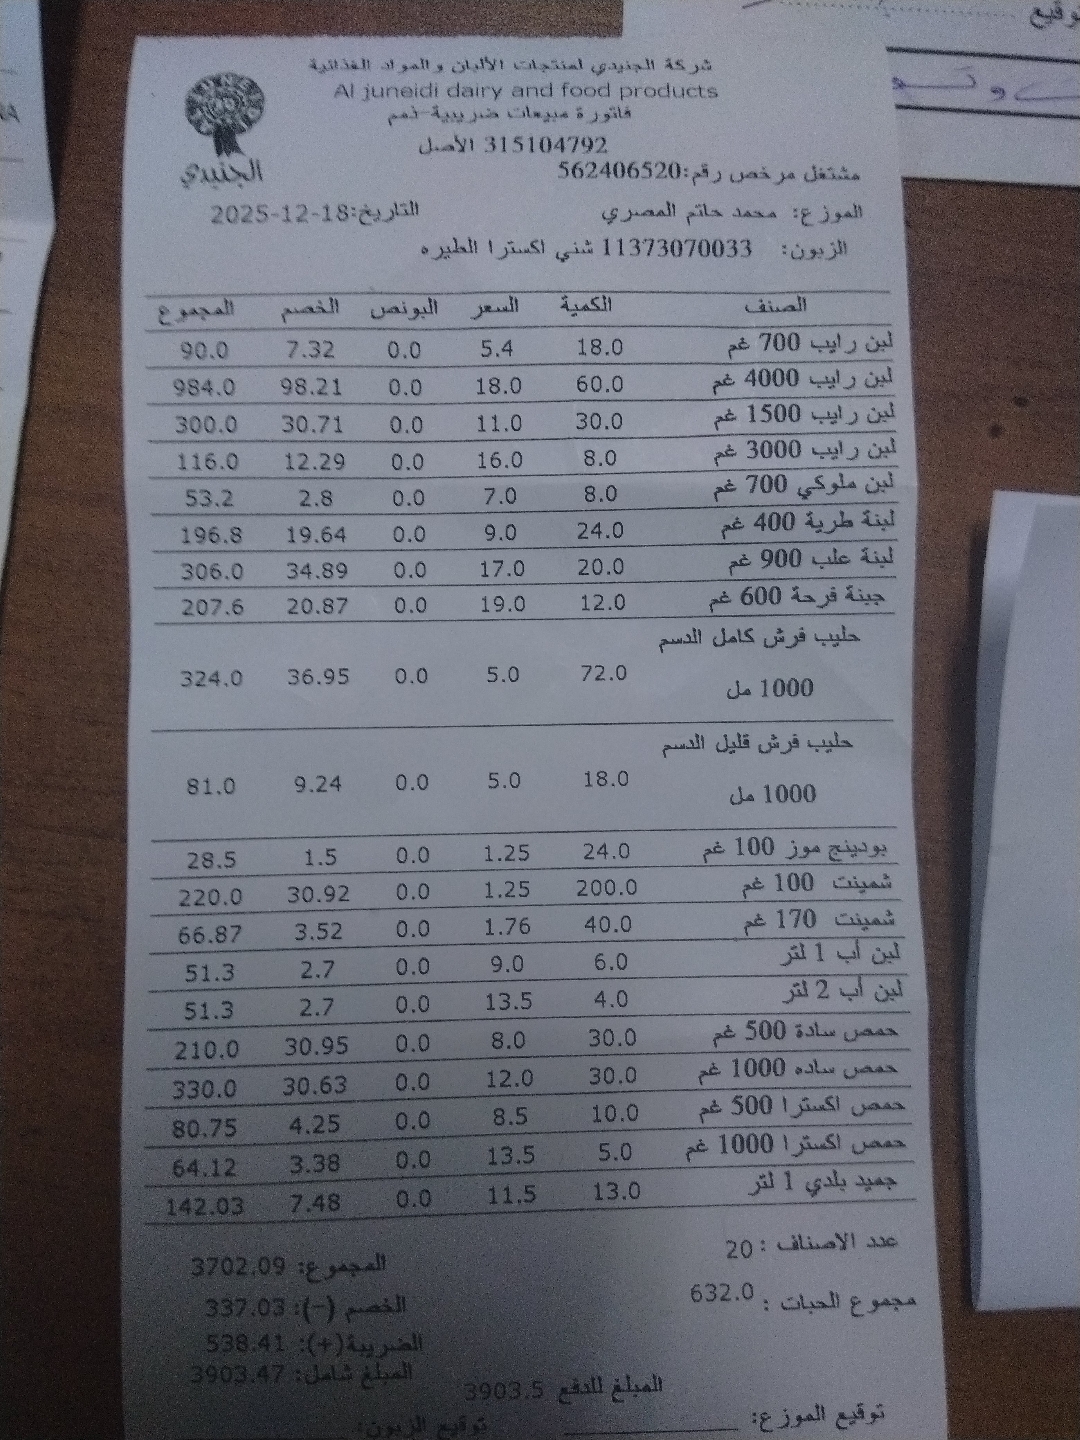 توقيع
شركة الجنيدي لمنتجات الألبان والمواد الغذائية
Al juneidi dairy and food products
فاتورة مبيعات ضريبية-ذمم
315104792 الأصل
الجنيدي
مشتغل مرخص رقم:562406520
الموزع: محمد حاتم المصري التاريخ:18-12-2025
الزبون: 11373070033 شني اكسترا الطيره
الصنف الكمية السعر البونص الخصم المجموع
لبن رايب 700 غم 18.0 5.4 0.0 7.32 90.0
لبن رايب 4000 غم 60.0 18.0 0.0 98.21 984.0
لبن رايب 1500 غم 30.0 11.0 0.0 30.71 300.0
لبن رايب 3000 غم 8.0 16.0 0.0 12.29 116.0
لبن ملوكي 700 غم 8.0 7.0 0.0 2.8 53.2
لبنة طرية 400 غم 24.0 9.0 0.0 19.64 196.8
لبنة علب 900 غم 20.0 17.0 0.0 34.89 306.0
جبنة فرحة 600 غم 12.0 19.0 0.0 20.87 207.6
حليب فرش كامل الدسم
1000 مل 72.0 5.0 0.0 36.95 324.0
حليب فرش قليل الدسم
1000 مل 18.0 5.0 0.0 9.24 81.0
بودينج موز 100 غم 24.0 1.25 0.0 1.5 28.5
شمينت 100 غم 200.0 1.25 0.0 30.92 220.0
شمينت 170 غم 40.0 1.76 0.0 3.52 66.87
لبن أب 1 لتر 6.0 9.0 0.0 2.7 51.3
لبن أب 2 لتر 4.0 13.5 0.0 2.7 51.3
حمص سادة 500 غم 30.0 8.0 0.0 30.95 210.0
حمص ساده 1000 غم 30.0 12.0 0.0 30.63 330.0
حمص اكسترا 500 غم 10.0 8.5 0.0 4.25 80.75
حمص اكسترا 1000 غم 5.0 13.5 0.0 3.38 64.12
جميد بلدي 1 لتر 13.0 11.5 0.0 7.48 142.03
عدد الاصناف : 20 المجموع: 3702.09
مجموع الحبات : 632.0 الخصم (-): 337.03
الضريبة(+): 538.41
المبلغ شامل: 3903.47
المبلغ للدفع 3903.5
توقيع الموزع: توقيع الزبون: